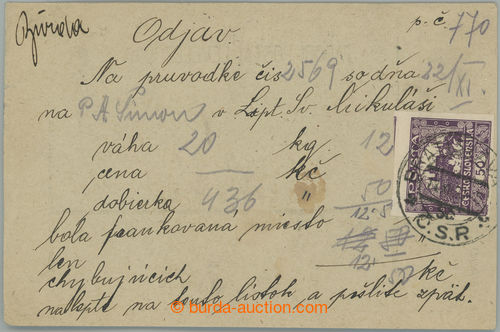 Odjav.
p. č. 770
Na pruvodke čís 2569 so dňa 22/XI.
na P. A. Simon v Lipt. Sv. Mikuláši
váha 20 kg 12
cena — kč
dobierka 436 " 50
12.5
bola frankovaná miesto "
len 12 kč
chybujúcich
nalepte na touto lístok a pošlite zpät.
POŠTA
ČESKO-SLOVENSKÁ
50
Č.S.R.
© burda-auction.com